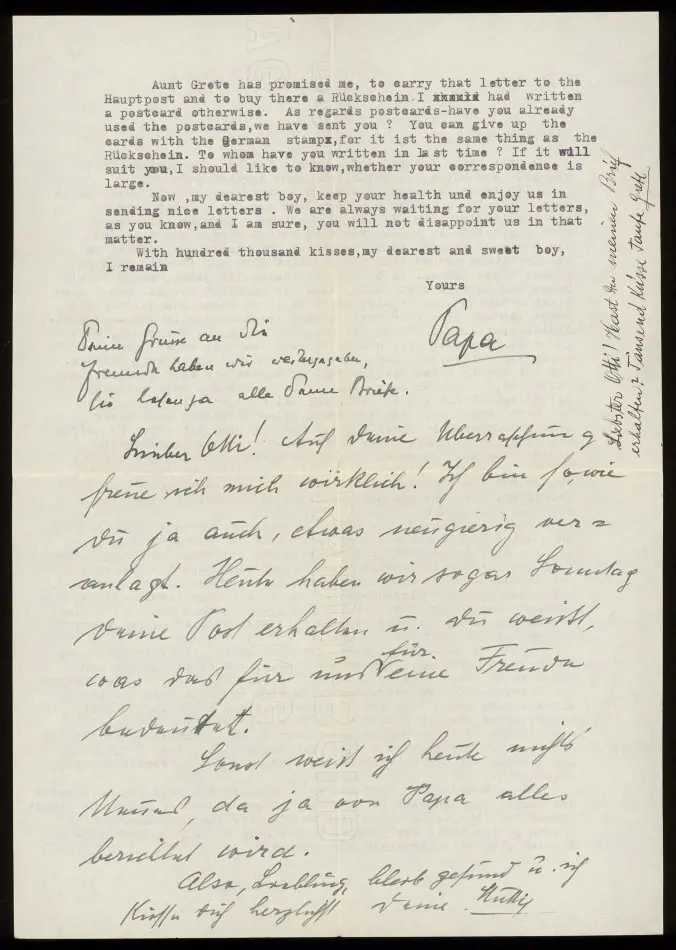 Aunt Grete has promised me, to carry that letter to the
Hauptpost and to buy there a Rückschein.I xxxxid had written
a postcard otherwise. As regards postcards-have you already
used the postcards,we have sent you ? You can give up the
cards with the German stampx,for it ist the same thing as the
Rückschein. To whom have you written in last time ? If it will
suit you,I should like to know,whether your correspondence is
large.
Now ,my dearest boy, keep your health und enjoy us in
sending nice letters . We are always waiting for your letters,
as you know,and I am sure, you will not disappoint us in that
matter.
With hundred thousand kisses,my dearest and sweet boy,
I remain
Yours
Papa
Deine Grüsse an die
Freunde haben wir weitergegeben,
sie lesen ja alle Deine Briefe.
Lieber Otti! Auf Deine Überraschung
freue ich mich wirklich! Ich bin so, wie
Du ja auch, etwas neugierig ver=
anlagt. Heute haben wir sogar Sonntag
Deine Post erhalten u. Du weisst,
was das für uns für eine Freude
bedeutet.
Sonst weiss ich heute nichts
Neues, da ja von Papa alles
berichtet wird.
Also, Liebling, bleib gesund u. ich
küsse Dich herzlichst Deine Mutti
Liebster Otti! Hast Du meinen Brief
erhalten? Tausend Küsse Tante Grete